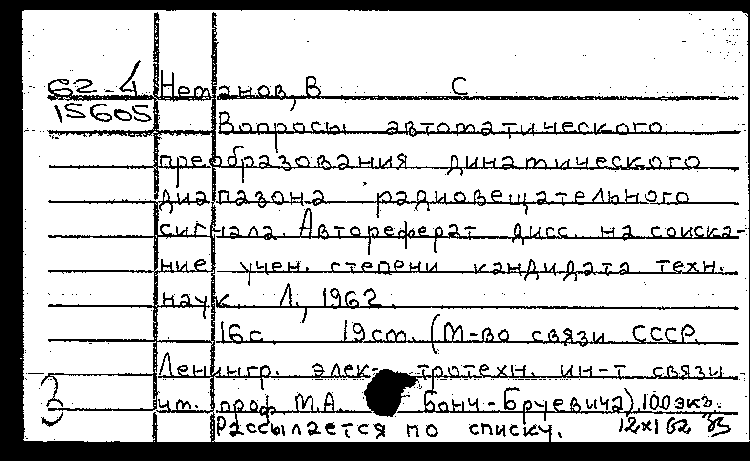 62-4 Нетанов, В С
15605
Вопросы автоматического
преобразования динатического
диапазона радиовещательного
сигнала. Автореферат дисс. на соиска-
ние учен. степени кандидата техн.
наук. Л., 1962.
16с. 19см. (М-во связи СССР.
Ленингр. элек- тротехн. ин-т связи
3 им. проф. М.А. Бонч-Бруевича). 100 экз.
Рассылается по списку. 12х1 62